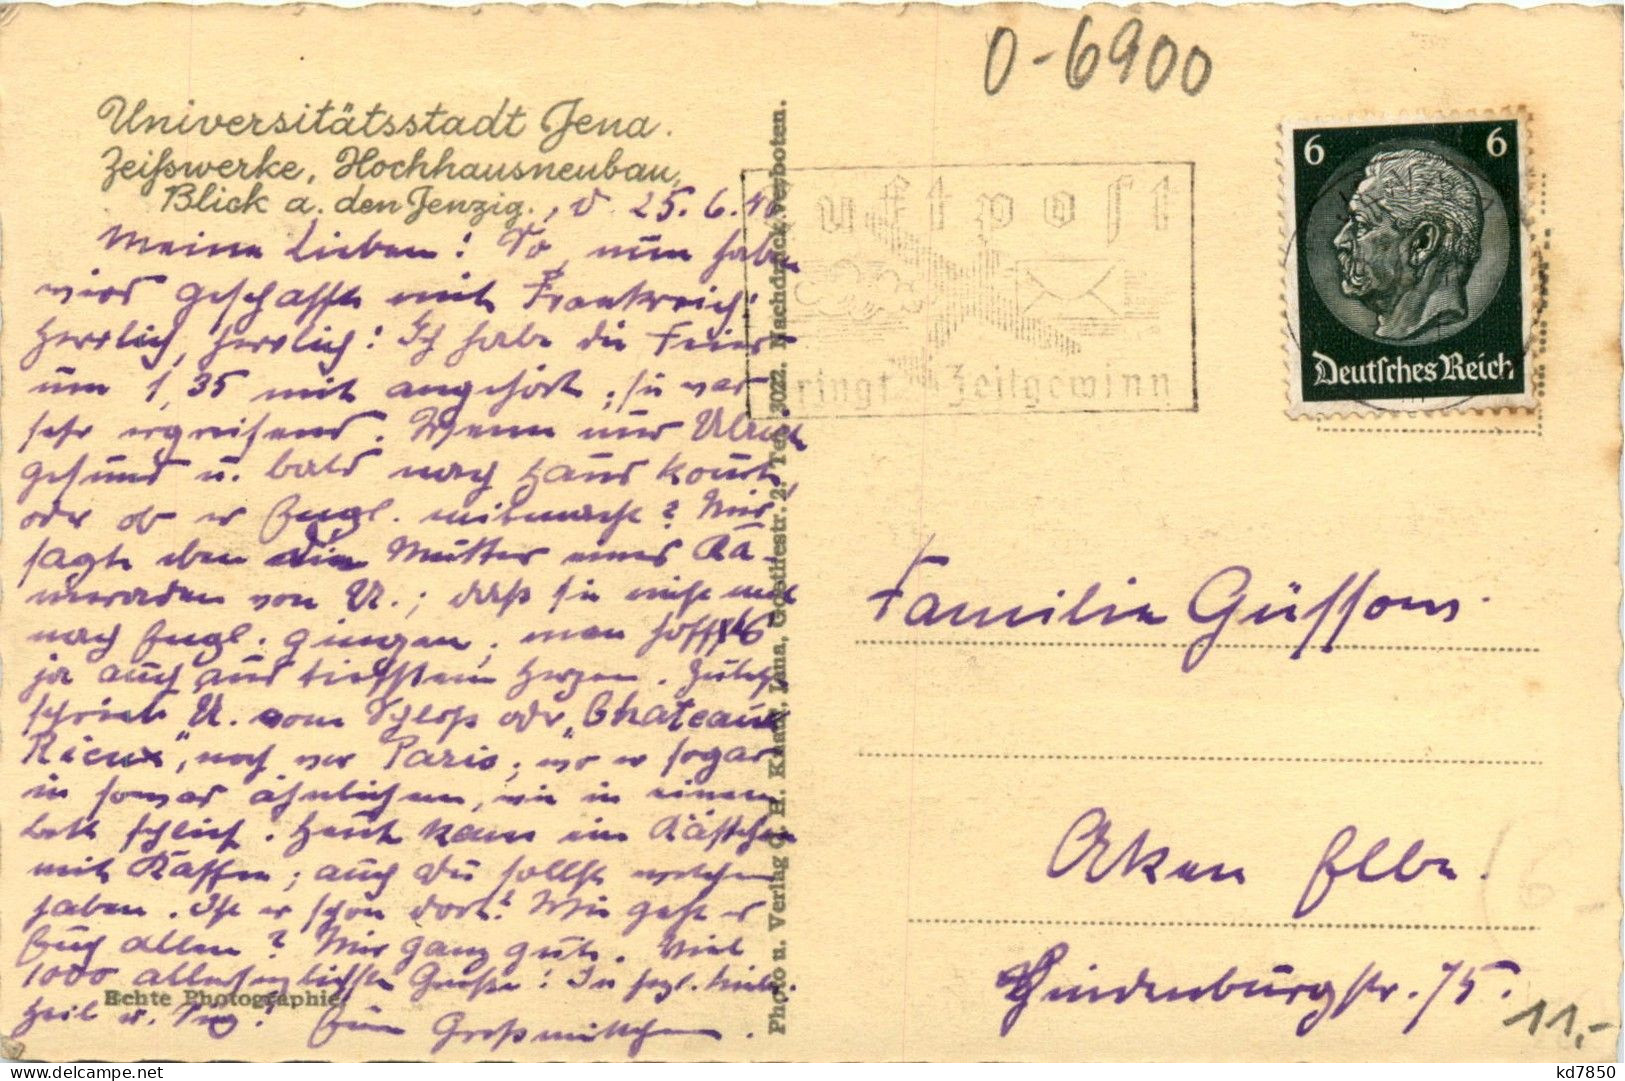 O-6900
Universitätsstadt Jena.
Zeißwerke, Hochhausneubau,
Blick a. den Jenzig.
, d. 25. 6. 40
Meine Lieben! So, nun haben
wirs geschafft mit Frankreich!
Herrlich, herrlich! Ich habe die Feier
um 1,35 mit angehört, sie war
sehr ergreifend. Wenn nur Ulrich
gesund u. bald nach Haus kommt,
oder ob er Engl. mitmacht? Mir
sagte eben die Mutter eines Ka-
meraden von U.; daß sie nicht mit
nach Engl. gingen, man hofft es
ja auch aus tiefstem Herzen. Zuletzt
schrieb U. vom Schloß oder "Chateaux
Rieux", noch vor Paris, wo er sogar
in ähnlichem, wie in einem
Bett schlief. Heut kam ein Kästchen
mit Kaffee; auch Du sollst welchen
haben. Ist er schon dort? Wie geht es
Euch allen? Mir ganz gut. Viel
1000 allerherzlichste Grüße! In herzl. Liebe.
Heil u. Sieg! Eure Großmütterchen.
Echte Photographie
Photo u. Verlag C. H. Knabe, Jena, Goethestr. 2. Tel. 3022. Nachdruck verboten.
Luftpost
bringt Zeitgewinn
6 6
Deutsches Reich
Familie Güssow
Aken Elbe.
Hindenburgstr. 75.
11,-
kd7850